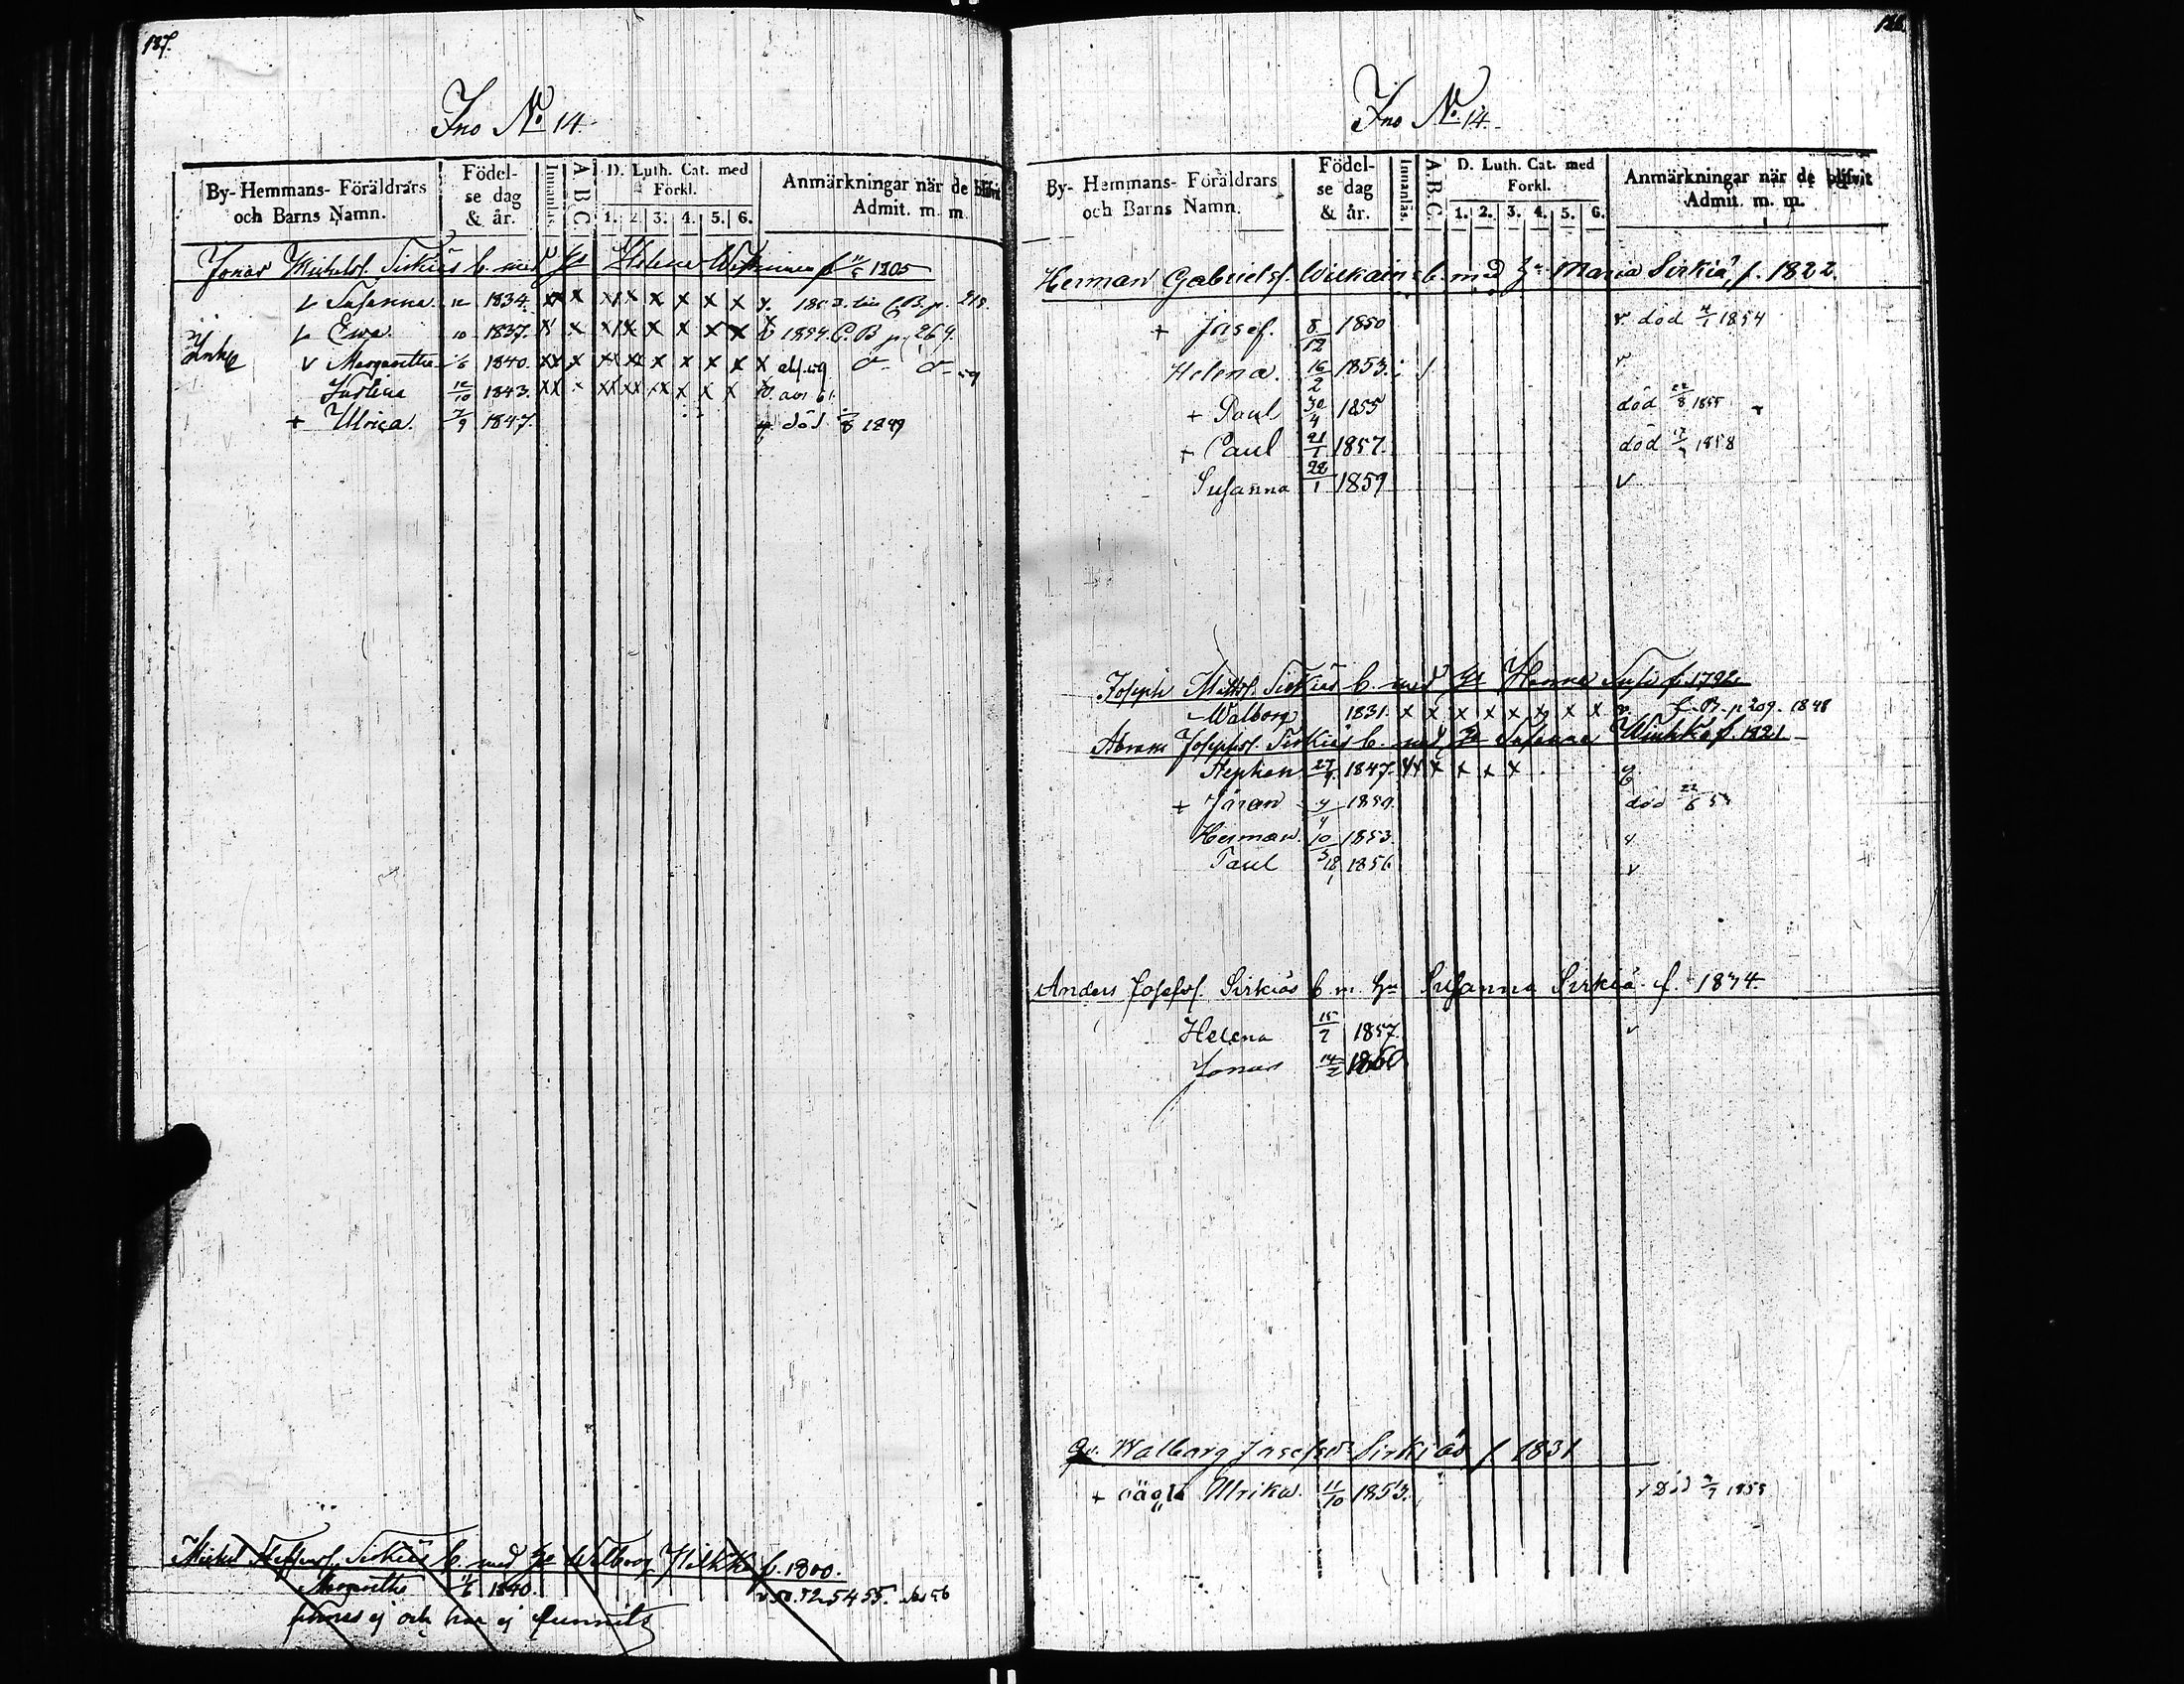 187.
Ino No 14.
By- Hemmans- Föräldrars och Barns Namn.
Födelse dag & år.
Innanläs.
A.B.C.
D. Luth. Cat. med Förkl.
1. 2. 3. 4. 5. 6.
Anmärkningar när de blifvit Admit. m. m.
Jonas Michelsf. Sirkiäs b. med Hu Helena f 1805
L Susanna. 12 1834. xx x xx x x x x x v. C.B. p. 218.
L Ewa. 10 1837. x x xx x x x x x 1854. C.B p 269.
v Margaretha 6 1840. xx x xx xx x x x x x
Justina 12/10 1843. xx x xx xx xx x x x
+ Ulrica. 7/9 1847. död 1849
Michel Sirkiäs b. med Hu Walborg f. 1800.
Margaretha 11/6 1840. v 50. 52 54 55.
finnes ej och har ej funnits
188.
Ino No 14.
By- Hemmans- Föräldrars och Barns Namn.
Födelse dag & år.
Innanläs.
A.B.C.
D. Luth. Cat. med Förkl.
1. 2. 3. 4. 5. 6.
Anmärkningar när de blifvit Admit. m. m.
Herman Gabrielsf. b. med Hu Maria Sirkiä, f. 1822.
+ Josef. 8/12 1850 v död 1854
Helena. 16/2 1853. v
+ Paul 30/4 1855 död 22/8 1855
+ Paul 21/1 1857. död 1858
Susanna 22/1 1859 v
Joseph Mattsf. Sirkiäs b. med Hu Hanna Susi f. 1792.
Walborg 1831. x x x x x x x x v. C.B. p 209. 1848
Abram Josephsf. Sirkiäs b. med Hu Susanna f. 1821
Stephan 27/9 1847. xx x x x x
+ Göran 1850. död 22/6 5
Herman. 10/3 1853. v
Paul 18/1 1856 v
Anders Josefsf. Sirkiäs b. m. Hu Susanna Sirkiä f. 1834
Helena 15/2 1857. v
Jonas 14/2 1860
Walborg Josefsd. Sirkiäs f 1831
+ oägta Ulrika. 11/10 1853. Död